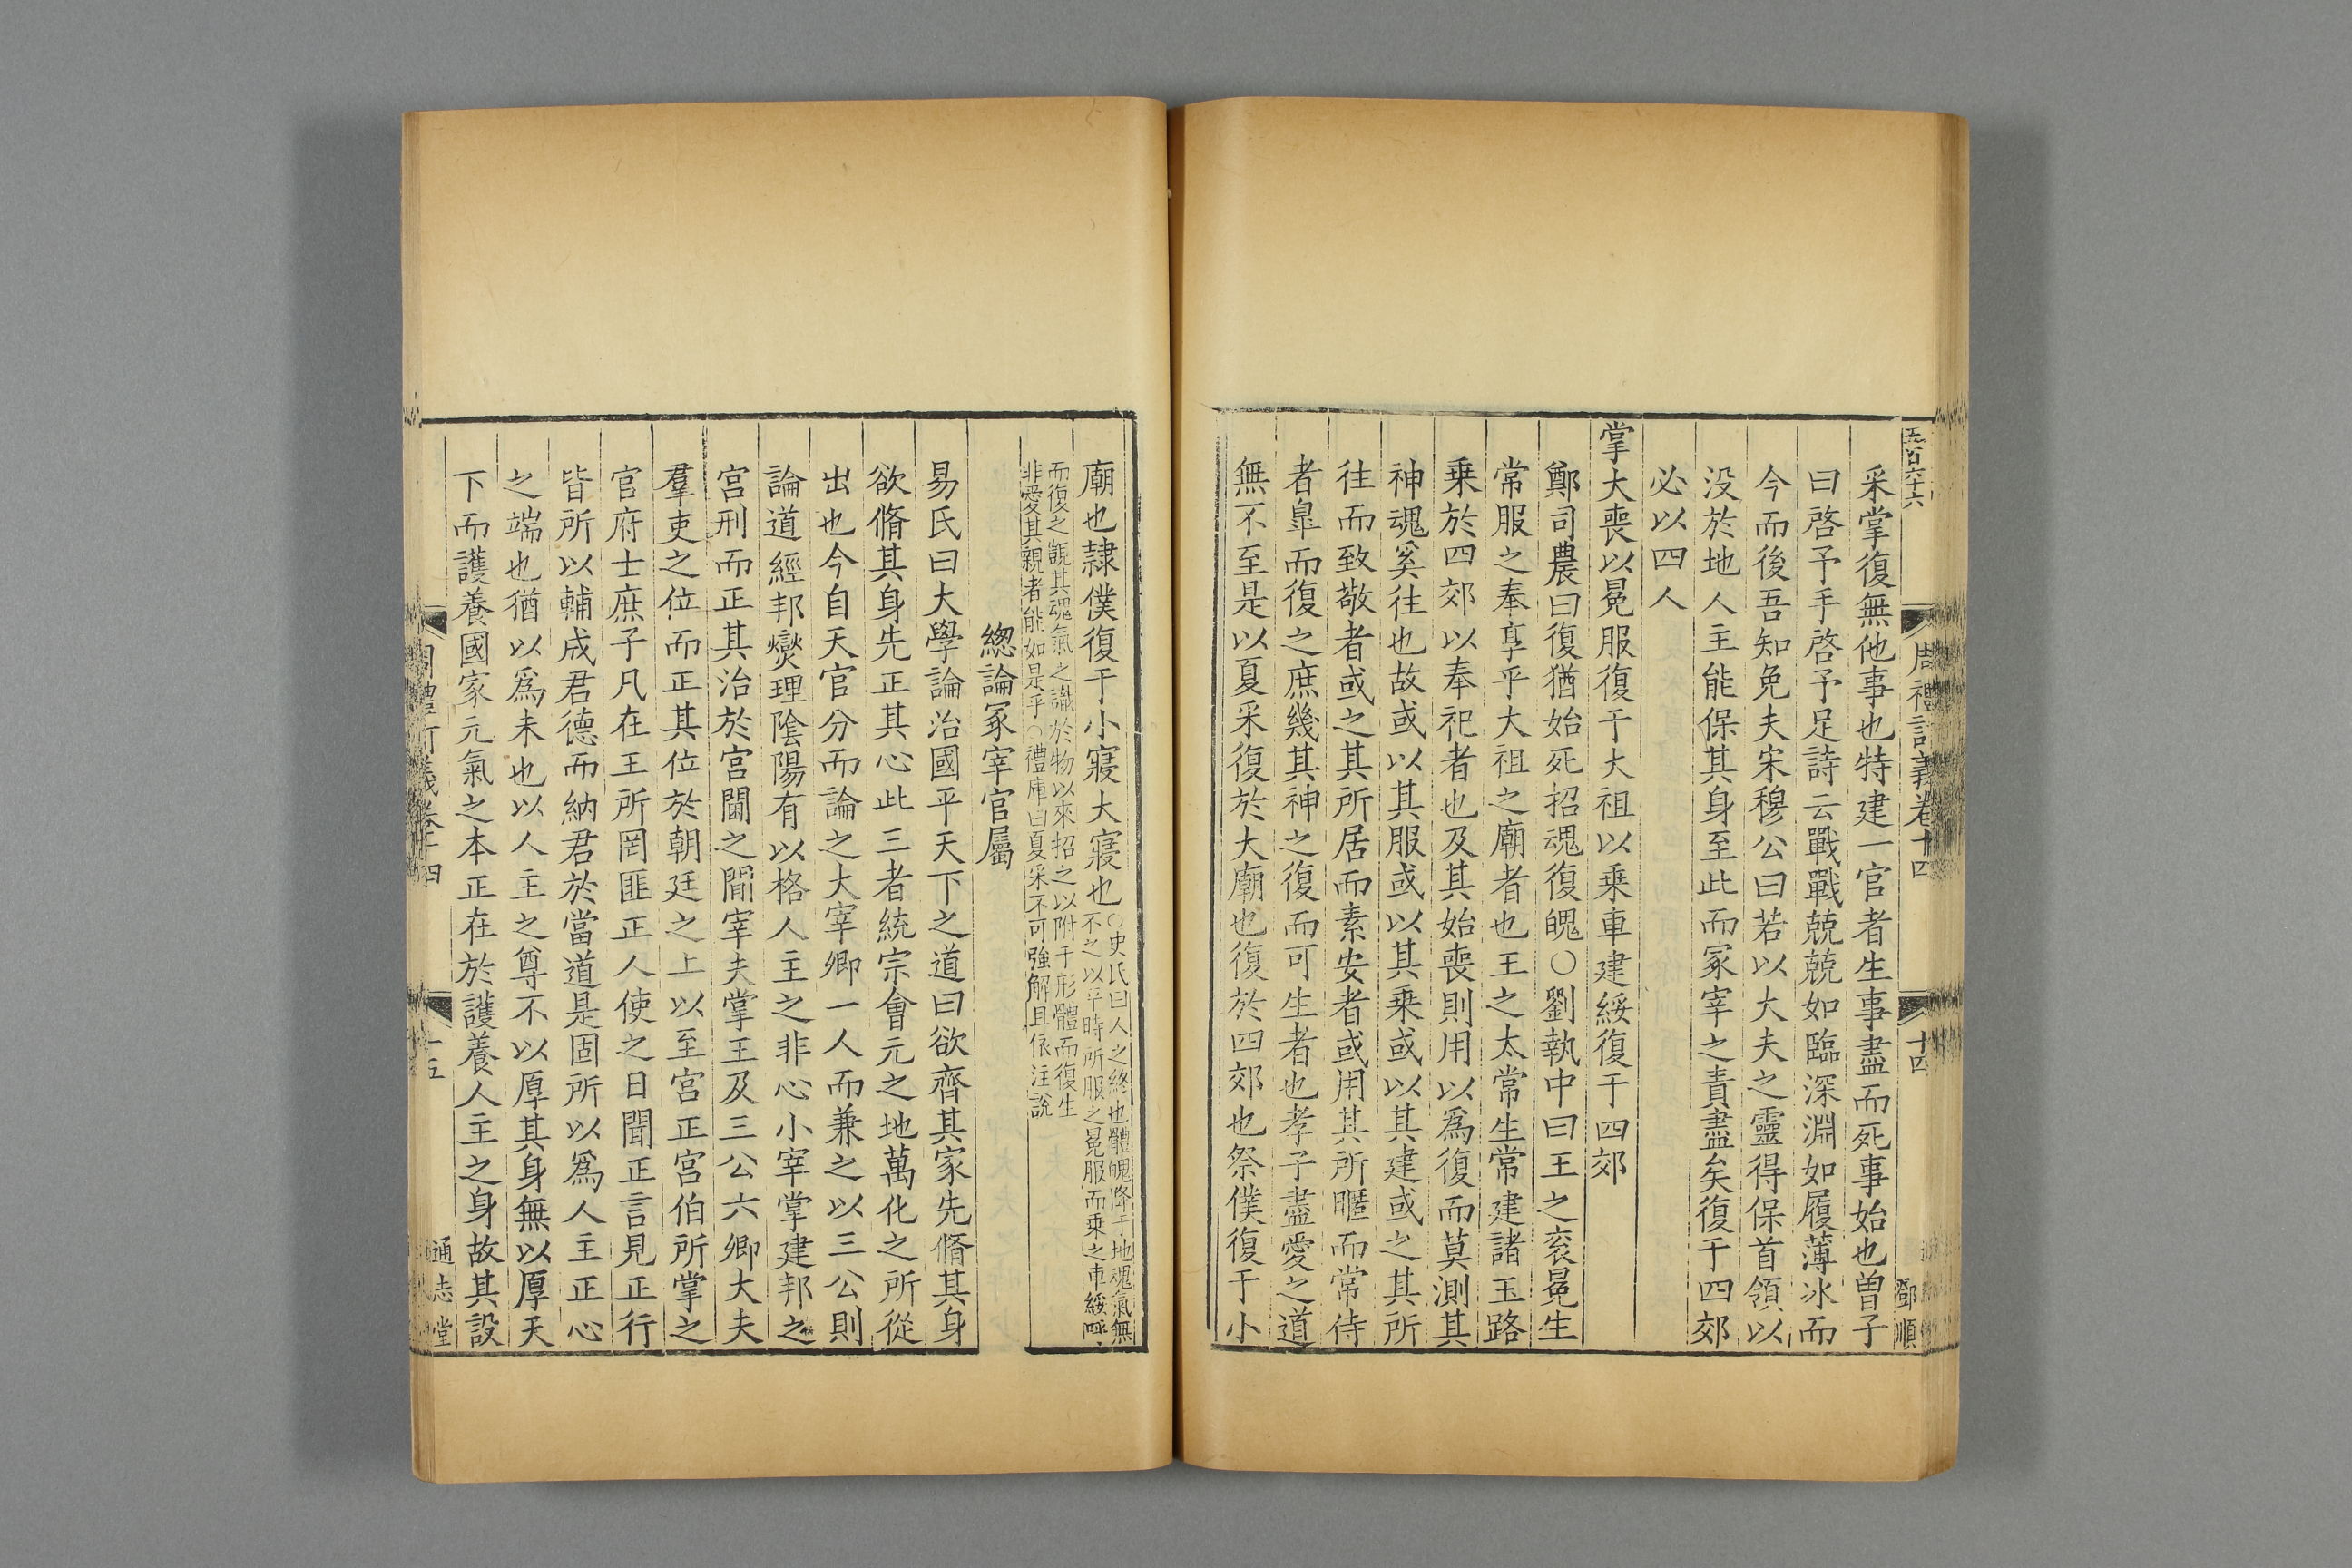 五百六十六
周禮訂義卷十四
十四
鄧順
采掌復無他事也特建一官者生事盡而死事始也曾子
曰啓予手啓予足詩云戰戰兢兢如臨深淵如履薄冰而
今而後吾知免夫宋穆公曰若以大夫之靈得保首領以
没於地人主能保其身至此而冢宰之責盡矣復于四郊
必以四人
掌大喪以冕服復于大祖以乗車建綏復于四郊
鄭司農曰復猶始死招魂復魄○劉執中曰王之衮冕生
常服之奉享乎大祖之廟者也王之太常生常建諸玉路
乗於四郊以奉祀者也及其始喪則用以爲復而莫測其
神魂奚往也故或以其服或以其乗或以其建或之其所
往而致敬者或之其所居而素安者或用其所暱而常侍
者臯而復之庶幾其神之復而可生者也孝子盡愛之道
無不至是以夏采復於大廟也復於四郊也祭僕復于小
廟也隷僕復于小寢大寢也
○史氏曰人之終也體魄降于地魂氣無
不之以平時所服之冕服而乗之車綏呼
而復之覬其魂氣之識於物以來招之以附于形體而復生
非愛其親者能如是乎○禮庫曰夏采不可強解且依注説
緫論冢宰官屬
易氏曰大學論治國平天下之道曰欲齊其家先脩其身
欲脩其身先正其心此三者統宗會元之地萬化之所從
出也今自天官分而論之大宰卿一人而兼之以三公則
論道經邦燮理隂陽有以格人主之非心小宰掌建邦之
宫刑而正其治於宫闈之間宰夫掌王及三公六卿大夫
羣吏之位而正其位於朝廷之上以至宫正宫伯所掌之
官府士庶子凡在王所罔匪正人使之日聞正言見正行
皆所以輔成君德而納君於當道是固所以爲人主正心
之端也猶以爲未也以人主之尊不以厚其身無以厚天
下而護養國家元氣之本正在於護養人主之身故其設
周禮訂義卷十四
十五
通志堂